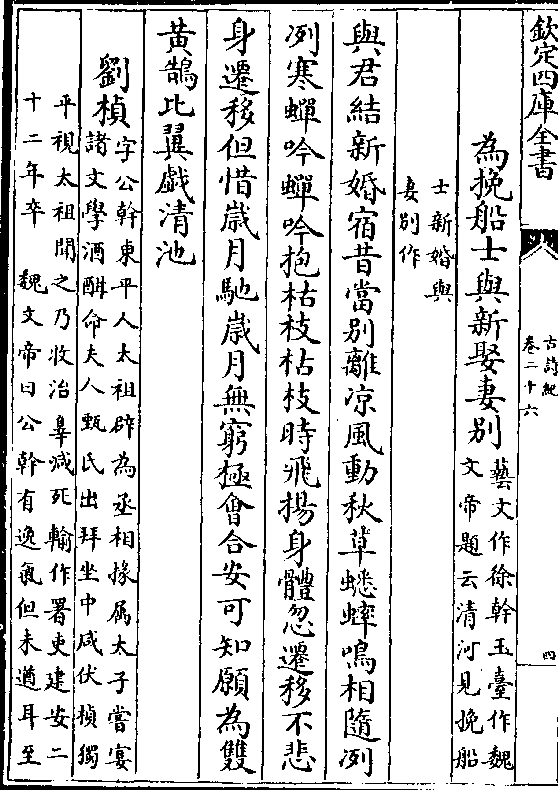 欽定四庫全書
古詩紀
卷二十六
四
為挽船士與新娶妻別
藝文作徐幹玉臺作魏
文帝題云清河見挽船
士新婚與
妻別作
與君結新婚宿昔當別離凉風動秋草蟋蟀鳴相隨冽
冽寒蟬吟蟬吟抱枯枝枯枝時飛揚身體忽遷移不悲
身遷移但惜嵗月馳嵗月無窮極會合安可知願為雙
黄鵠比翼戯清池
劉楨
字公幹東平人太祖辟為丞相掾属太子嘗宴
諸文學酒酣命夫人甄氏出拜坐中咸伏楨獨
平視太祖聞之乃收治辠减死輸作署吏建安二
十二年卒 魏文帝曰公幹有逸氣但未遒耳至